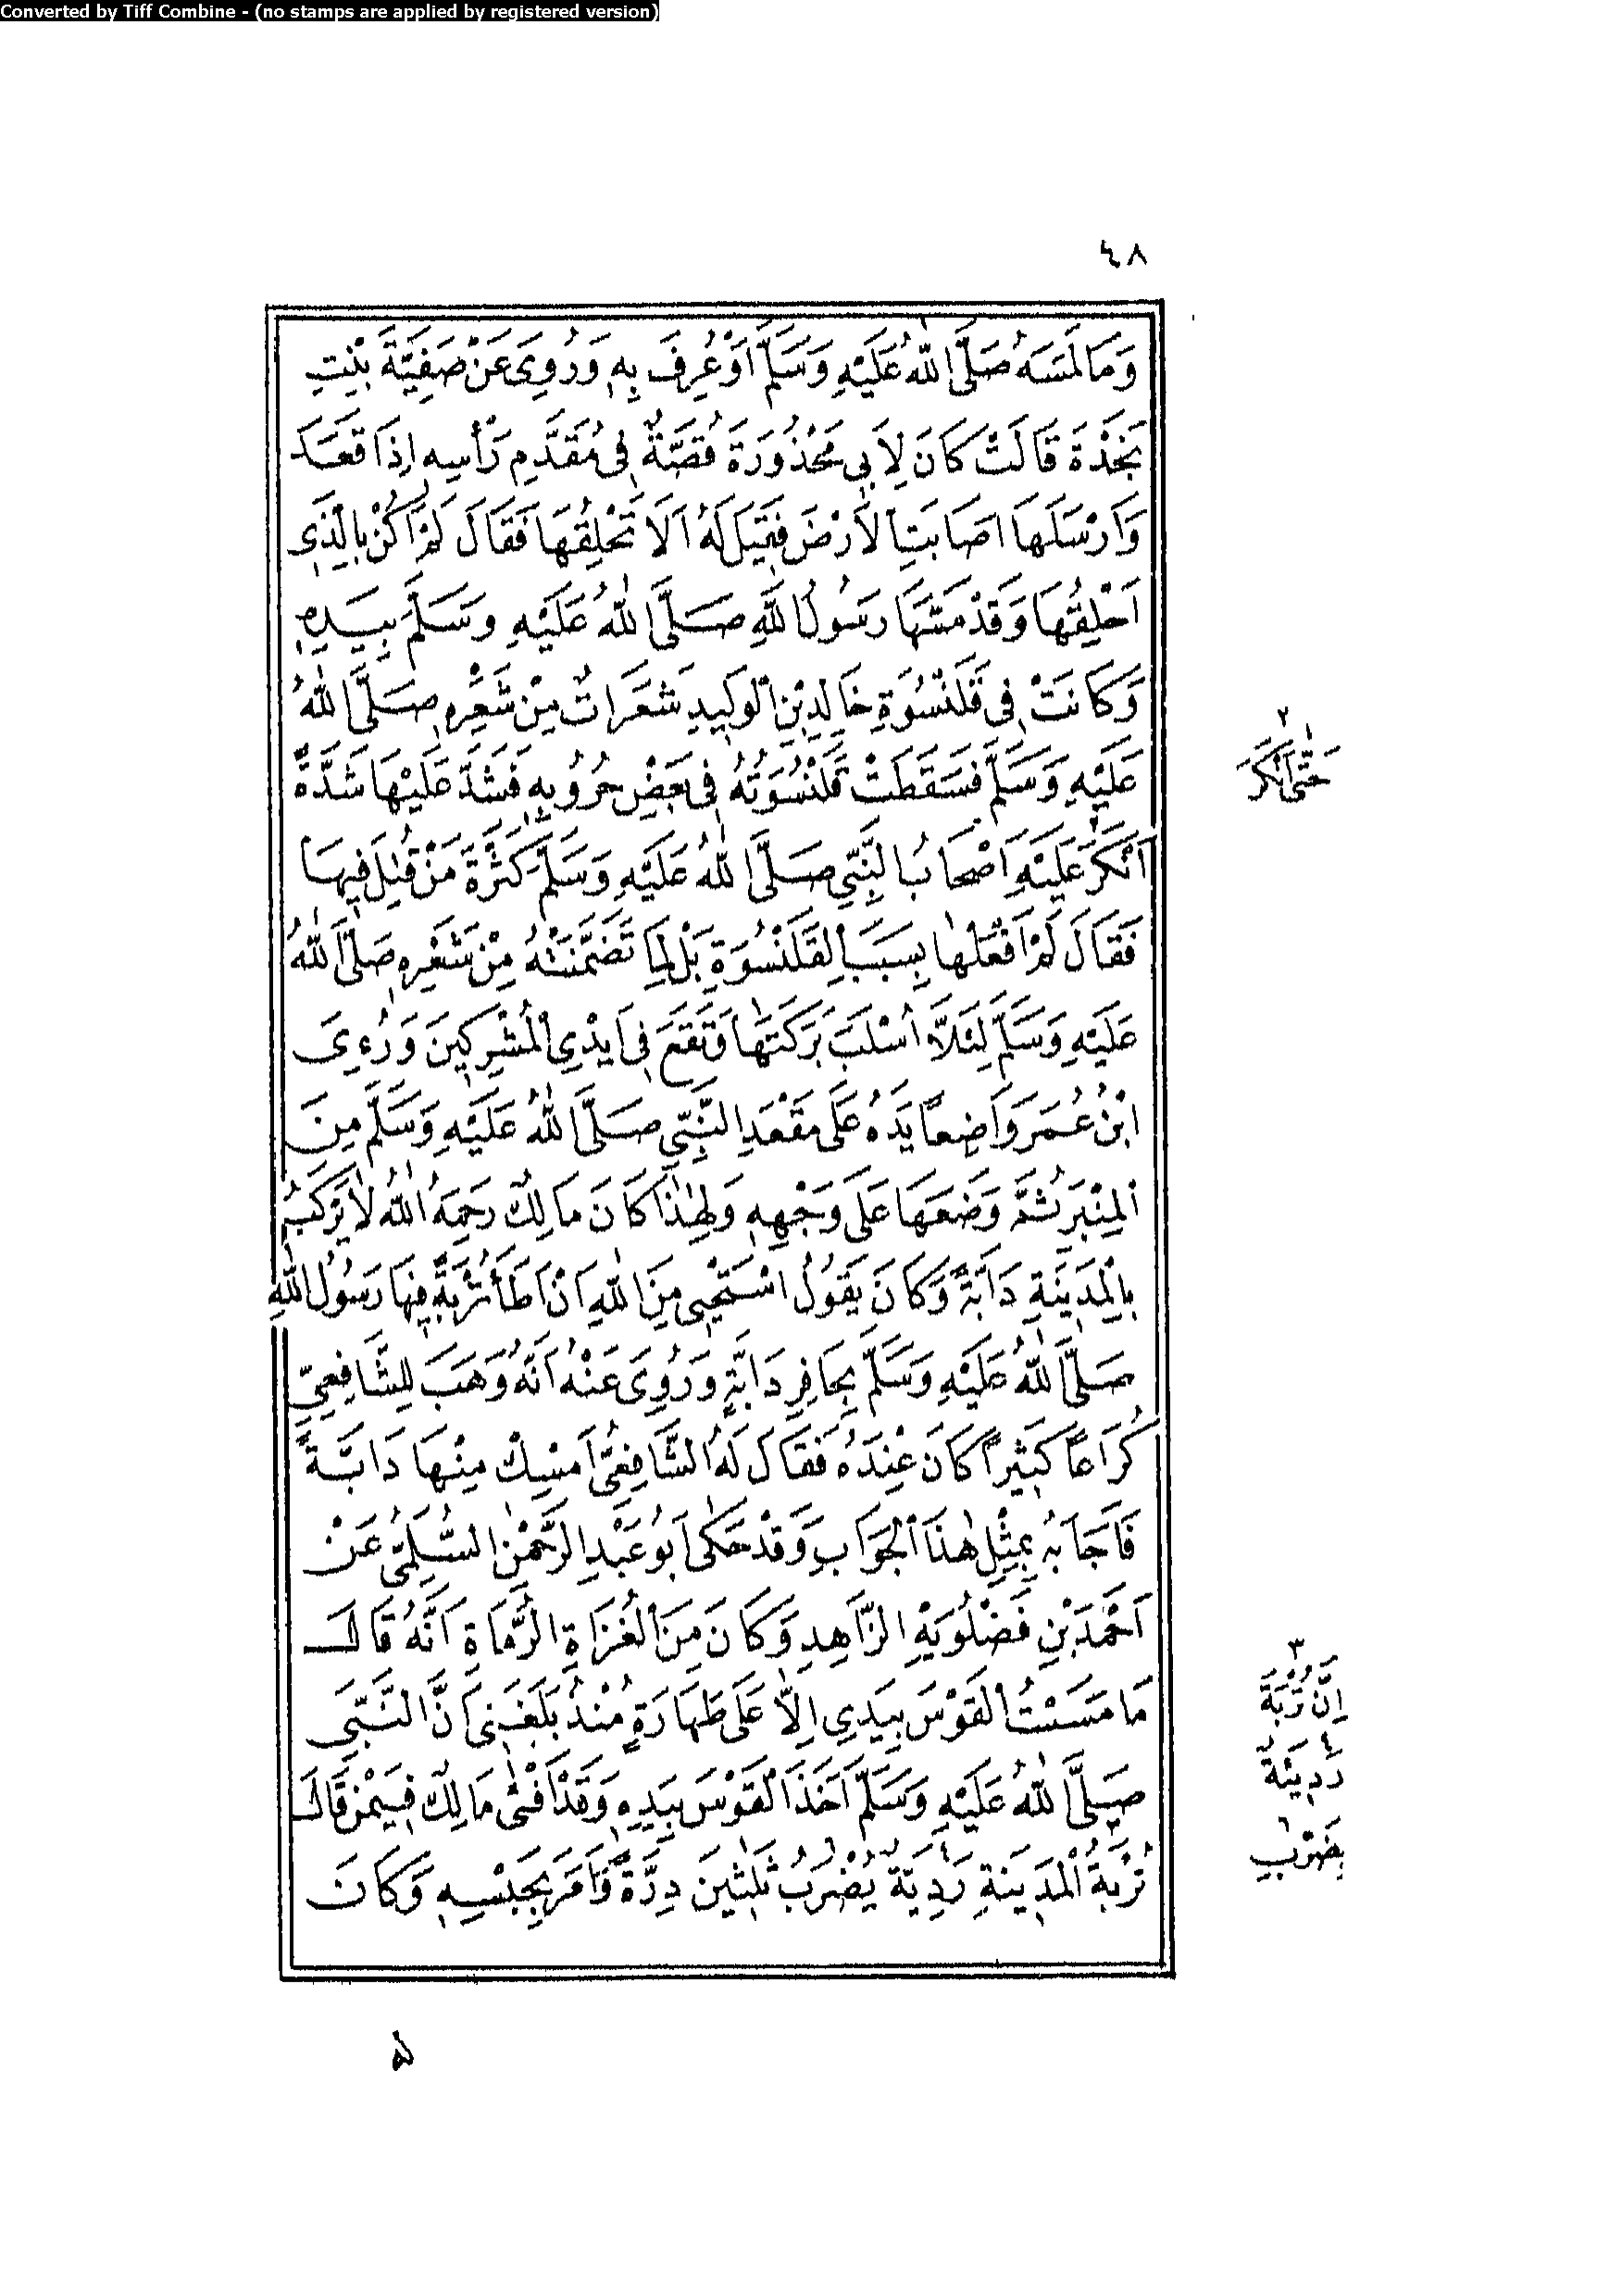 Converted by Tiff Combine - (no stamps are applied by registered version)
٤٨
وَمَا لَمَسَهُ صَلَّى اللّٰهُ عَلَيْهِ وَسَلَّمَ اَوْ عُرِفَ بِهِ وَرُوِىَ عَنْ صَفِيَّةَ بِنْتِ
نَجْدَةَ قَالَتْ كَانَ لِاَبِى مَحْذُورَةَ قُصَّةٌ فِى مُقَدَّمِ رَأْسِهِ اِذَا قَعَدَ
وَاَرْسَلَهَا اَصَابَتِ الْاَرْضَ فَقِيلَ لَهُ اَلَا تَحْلِقُهَا فَقَالَ لَمْ اَكُنْ بِالَّذِى
اَحْلِقُهَا وَقَدْ مَسَّهَا رَسُولُ اللّٰهِ صَلَّى اللّٰهُ عَلَيْهِ وَسَلَّمَ بِيَدِهِ
وَكَانَتْ فِى قَلَنْسُوَةِ خَالِدِ بْنِ الْوَلِيدِ شَعَرَاتٌ مِنْ شَعْرِهِ صَلَّى اللّٰهُ
عَلَيْهِ وَسَلَّمَ فَسَقَطَتْ قَلَنْسُوَتُهُ فِى بَعْضِ حُرُوبِهِ فَشَدَّ عَلَيْهَا شَدَّةً
٢
حَتّٰى اَنْكَرَ
اَنْكَرَ عَلَيْهِ اَصْحَابُ النَّبِىِّ صَلَّى اللّٰهُ عَلَيْهِ وَسَلَّمَ كَثْرَةَ مَنْ قُتِلَ فِيهَا
فَقَالَ لَمْ اَفْعَلْهَا بِسَبَبِ الْقَلَنْسُوَةِ بَلْ لِمَا تَضَمَّنَتْهُ مِنْ شَعْرِهِ صَلَّى اللّٰهُ
عَلَيْهِ وَسَلَّمَ لِئَلَّا اُسْلَبَ بَرَكَتَهَا وَتَقَعَ فِى اَيْدِى الْمُشْرِكِينَ وَرُءِىَ
ابْنُ عُمَرَ وَاضِعًا يَدَهُ عَلَى مَقْعَدِ النَّبِىِّ صَلَّى اللّٰهُ عَلَيْهِ وَسَلَّمَ مِنَ
الْمِنْبَرِ ثُمَّ وَضَعَهَا عَلَى وَجْهِهِ وَلِهٰذَا كَانَ مَالِكٌ رَحِمَهُ اللّٰهُ لَا يَرْكَبُ
بِالْمَدِينَةِ دَابَّةً وَكَانَ يَقُولُ اَسْتَحْيِى مِنَ اللّٰهِ اَنْ اَطَأَ تُرْبَةً فِيهَا رَسُولُ اللّٰهِ
صَلَّى اللّٰهُ عَلَيْهِ وَسَلَّمَ بِحَافِرِ دَابَّةٍ وَرُوِىَ عَنْهُ اَنَّهُ وَهَبَ لِلشَّافِعِىِّ
كُرَاعًا كَثِيرًا كَانَ عِنْدَهُ فَقَالَ لَهُ الشَّافِعِىُّ اَمْسِكْ مِنْهَا دَابَّةً
فَاَجَابَهُ بِمِثْلِ هٰذَا الْجَوَابِ وَقَدْ حَكٰى اَبُو عَبْدِ الرَّحْمٰنِ السُّلَمِىُّ عَنْ
اَحْمَدَ بْنِ فَضْلُوَيْهِ الزَّاهِدِ وَكَانَ مِنَ الْغُزَاةِ الرُّمَاةِ اَنَّهُ قَالَ
مَا مَسَسْتُ الْقَوْسَ بِيَدِى اِلَّا عَلَى طَهَارَةٍ مُنْذُ بَلَغَنِى اَنَّ النَّبِىَّ
صَلَّى اللّٰهُ عَلَيْهِ وَسَلَّمَ اَخَذَ الْقَوْسَ بِيَدِهِ وَقَدْ اَفْتٰى مَالِكٌ فِيمَنْ قَالَ
تُرْبَةُ الْمَدِينَةِ رَدِيَّةٌ يُضْرَبُ ثَلٰثِينَ دِرَّةً وَاَمَرَ بِحَبْسِهِ وَكَانَ
٣
اِنَّ تُرْبَةَ
٤
رَدِيئَةٌ
٦
بِضَرْبِ